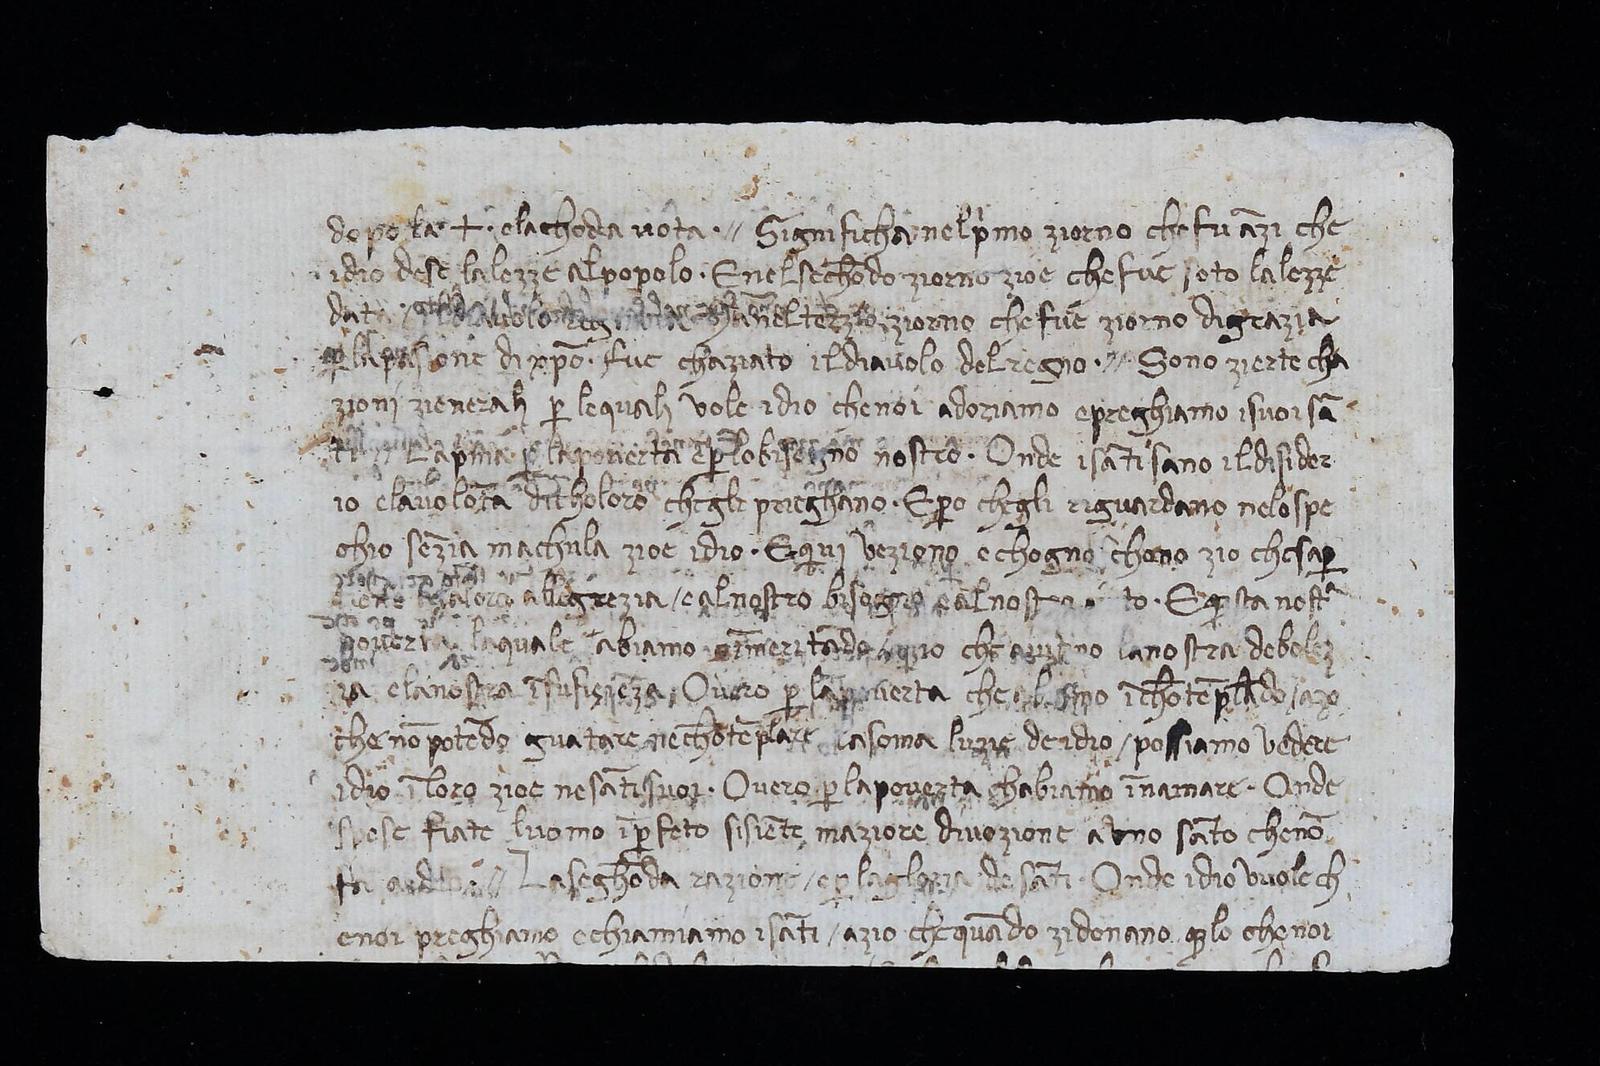 dopo la + · elachoda uota · // Significha nel p̄mo ziorno che fu āzi che
idio dese la lezze al popolo · E nel sechōdo ziorno zioe che fue soto la lezze
data il diauolo nel terzo ziorno che fue ziorno di grazia
ꝑ la pasione di xp̄o · fue chaziato il diauolo del regno · // Sono zierte cha
zioni zienerali ꝑ lequali vole idio che noi adoriamo e preghiamo i suoi sā
ti // La p̄ma ꝑ la pouerta e ꝑ lo bisogno nostro · Onde i sāti sano il disider
io e la volōta di choloro che gli prieghano · E ꝑo che gli riguardano nelo spe
chio sēzia machula zioe idio · E quui veziono e chognoschono zio che sa ꝑ
tiene a loro allegrezia / e al nostro bisogno e al nostro to · E q̄sta nostra
pouerta laquale abiamo ī meritādo / azio che auizino la nostra debolez
za e la nostra īsufiziēza · Overo ꝑ la pouerta che abiamo ī chōtēplādo / azo
che nō potēdo guatare ne chōtēplare la soma luzie de idio / possiamo vedere
idio ī loro zioe ne sāti suoi · Overo ꝑ la pouerta ch abiamo īn amare · Onde
spese fiate luomo īꝑfeto si siente maziore divozione a uno sāto che nō
fa a dio · // La seghōda razione / e ꝑ la gloria de sāti · Onde idio vuole ch
e noi preghiamo e chiamiamo i sāti / azio che quādo zi donano q̄lo che noi